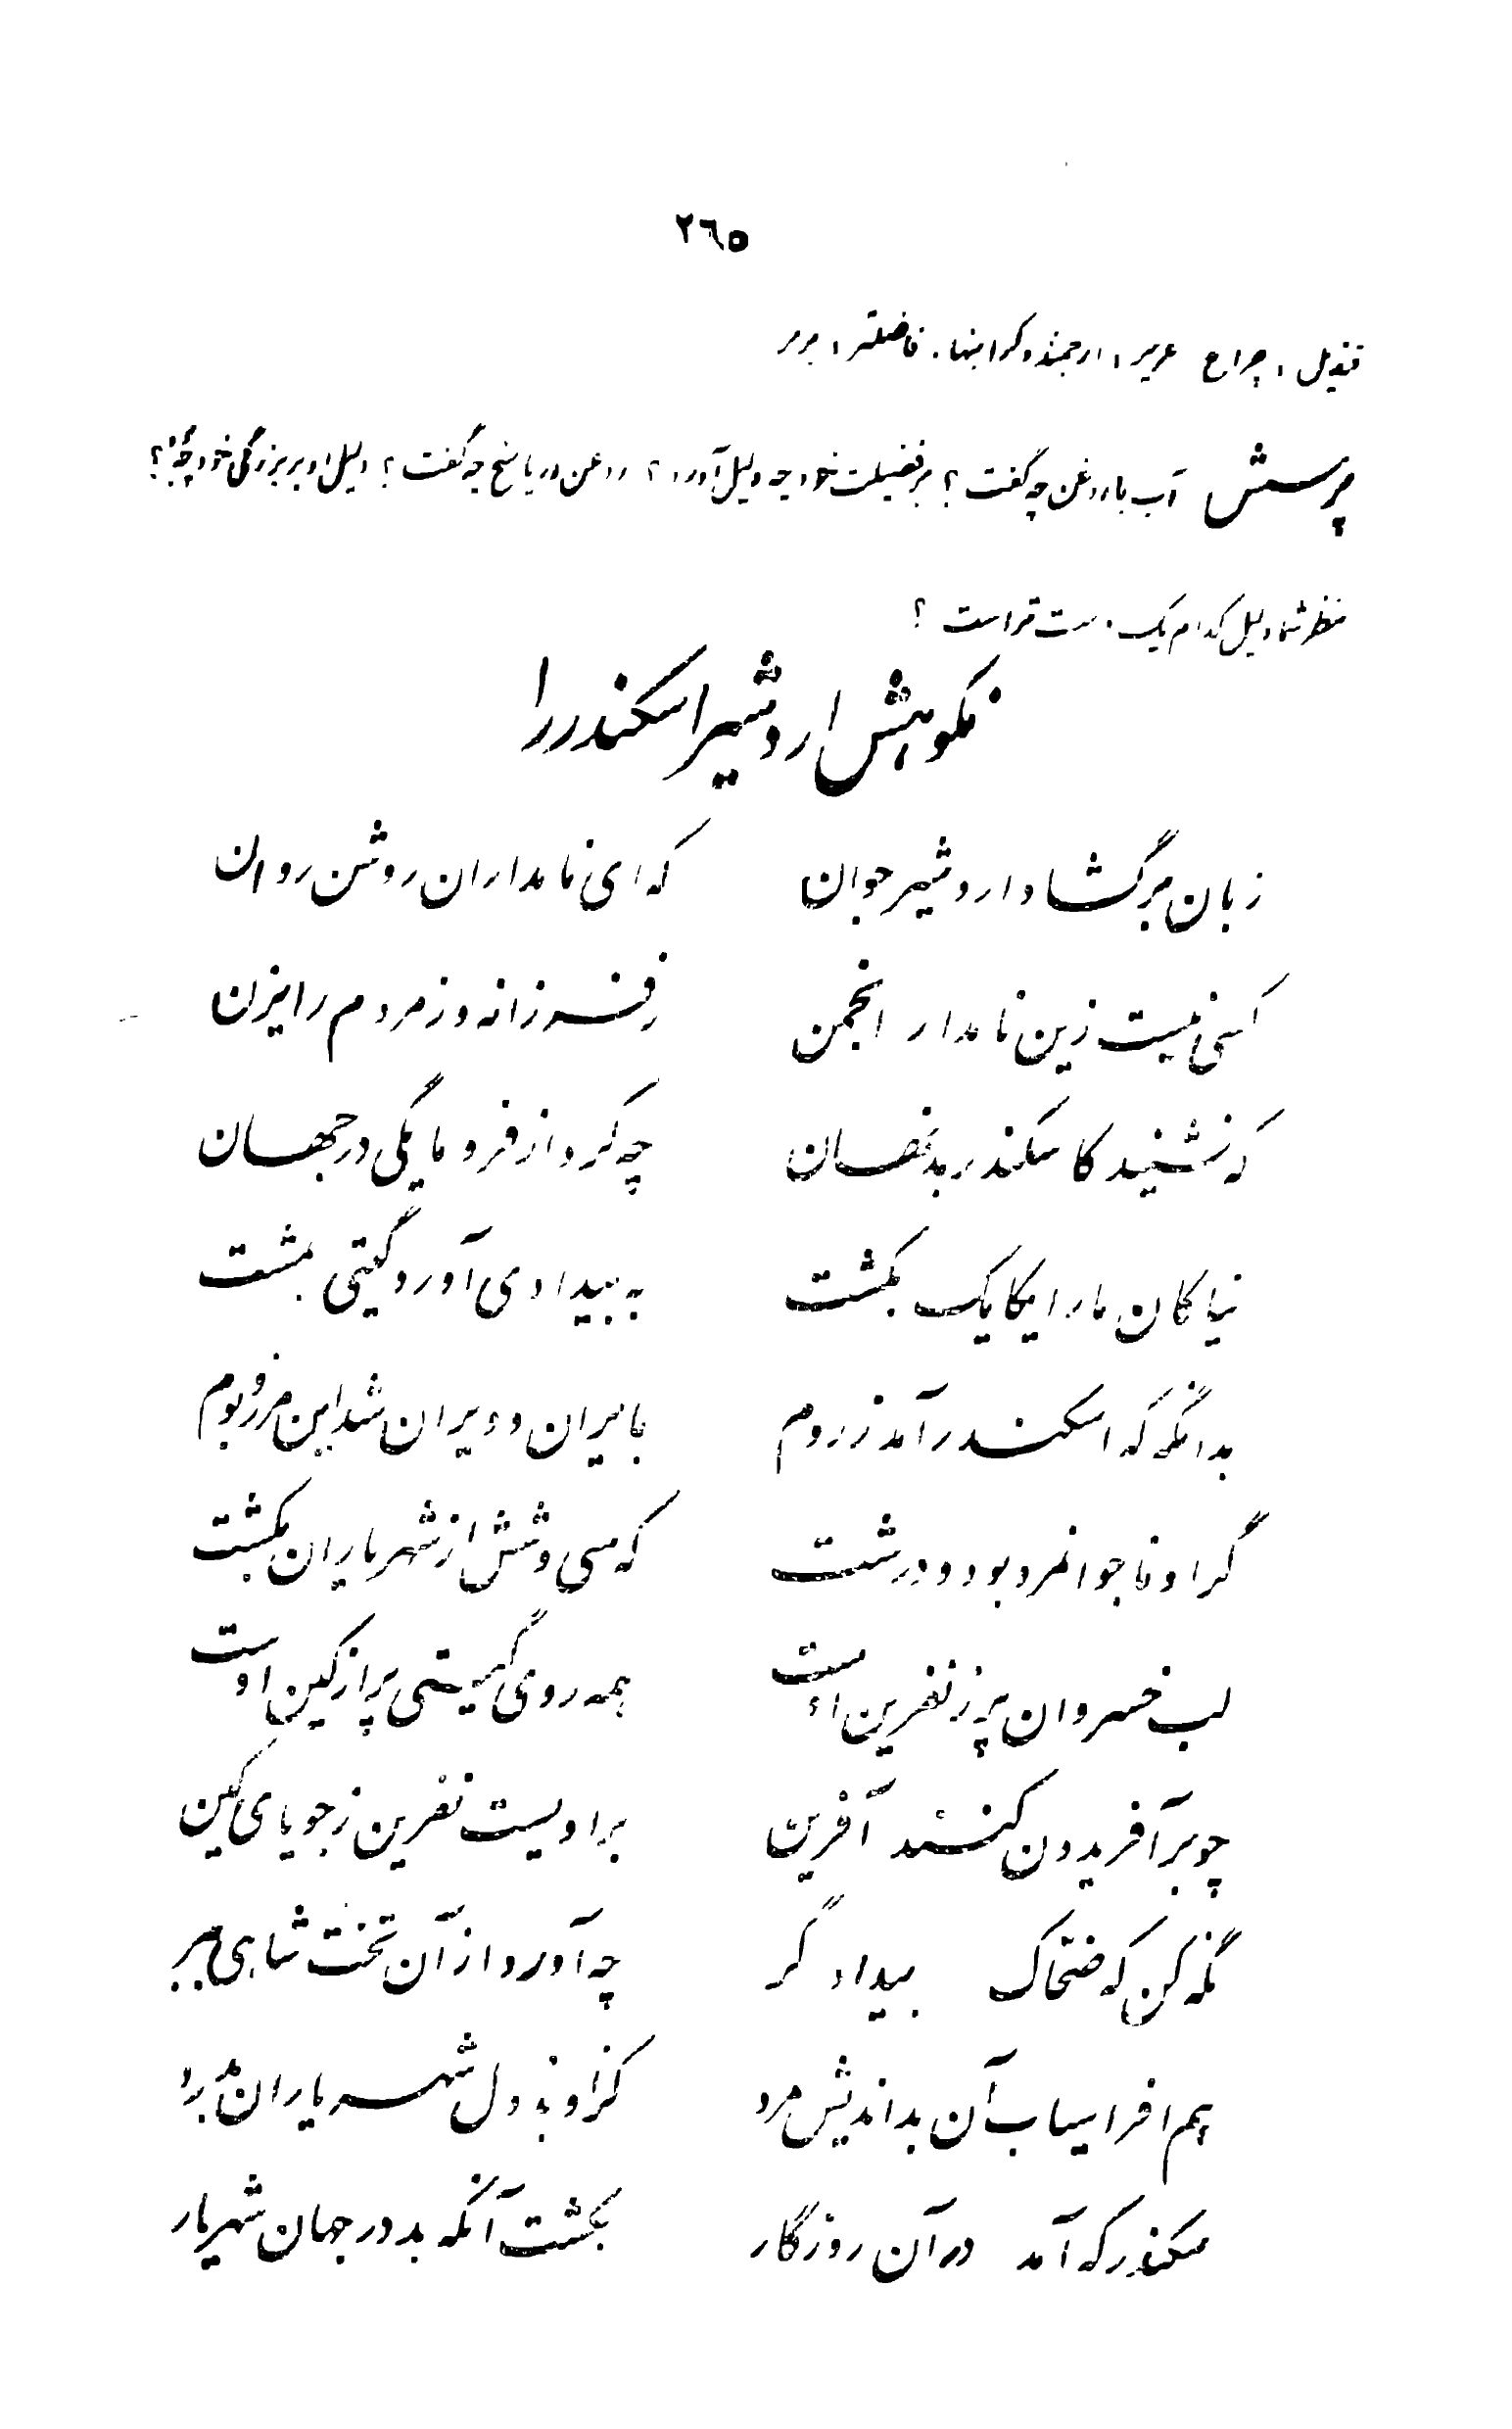 ٢٦٥
قندیل، چراغ عزیز، ارجمند و گرانبها. فاضلتر، برتر
پرسش آب با روغن چه گفت؟ بر فضیلت خود چه دلیل آورد؟ روغن در پاسخ چه گفت؟ دلیل او بر بزرگی خود چه بود؟
بنظر شما دلیل کدام یک درست تر است؟
نکوهش اردشیر اسکندر را
زبان برگشاد اردشیر جوان که ای نامداران روشن روان
کسی نیست زین نامدار انجمن ز فرزانه و ز مردم رایزن
که نشنید کاسکندر بدنهان چه کرد از فرومایگی در جهان
نیاکان ما را یکایک بکشت به بیدادی آورد گیتی بمشت
بدانگه که اسکندر آمد ز روم بایران و ویران شد این مرز و بوم
گر او ناجوانمرد بود و درشت که سی و شش از شهریاران بکشت
لب خسروان پر ز نفرین اوست همه روی گیتی پر از کین اوست
چو بر آفریدون کنند آفرین بر اویست نفرین ز جویای کین
نگه کن که ضحاک بیدادگر چه آورد از آن تخت شاهی بسر
هم افراسیاب آن بداندیش مرد کزو بد دل شهریاران بدرد
سکندر که آمد در آن روزگار بکشت آنکه بد در جهان شهریار